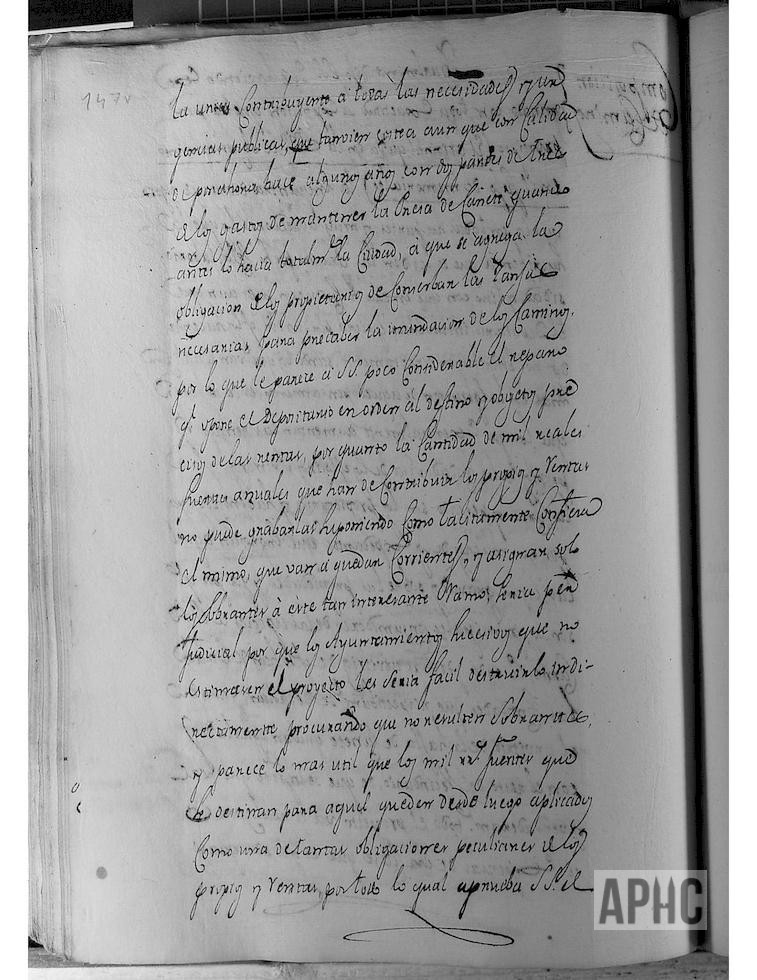 147v
la unica Contribuyente à todas las necesidades, y ur
gencias publicas, que tanvien costea aun que con Calidad
de por ahora, hace algunos años, con dos partes de tres
los gastos de mantener la Presa de Cañete quando
antes lo hacia totalmte la Ciudad, à que se agrega la
obligacion de los propietarios de Conserbar las
necesarias para precaber la inundacion de los Caminos,
por lo que le parece à S.S. poco Considerable el reparo
qe opone el Depositario en orden al destino y obgetos pre
cisos de las rentas, por quanto la Cantidad de mil reales
fuertes anuales que han de Contribuir los propios y Rentas
no puede grabarlas suponiendo Como tacitamente Confiesa
el mismo, que van à quedar Corrientes, y asignar solo
los Sobrantes à este tan interesante Ramo, seria per
judicial por que los Ayuntamientos succesivos que no
estimasen el proyecto les seria facil destruirlo indi-
rectamente procurando que no resulten Sobrantes,
y parece lo mas util que los mil rrs fuertes que
se destinan para aquel queden desde luego aplicados
Como una de tantas obligaciones peculiares de los
propios y Rentas, por todo lo qual aprueba S.S. el
APHC